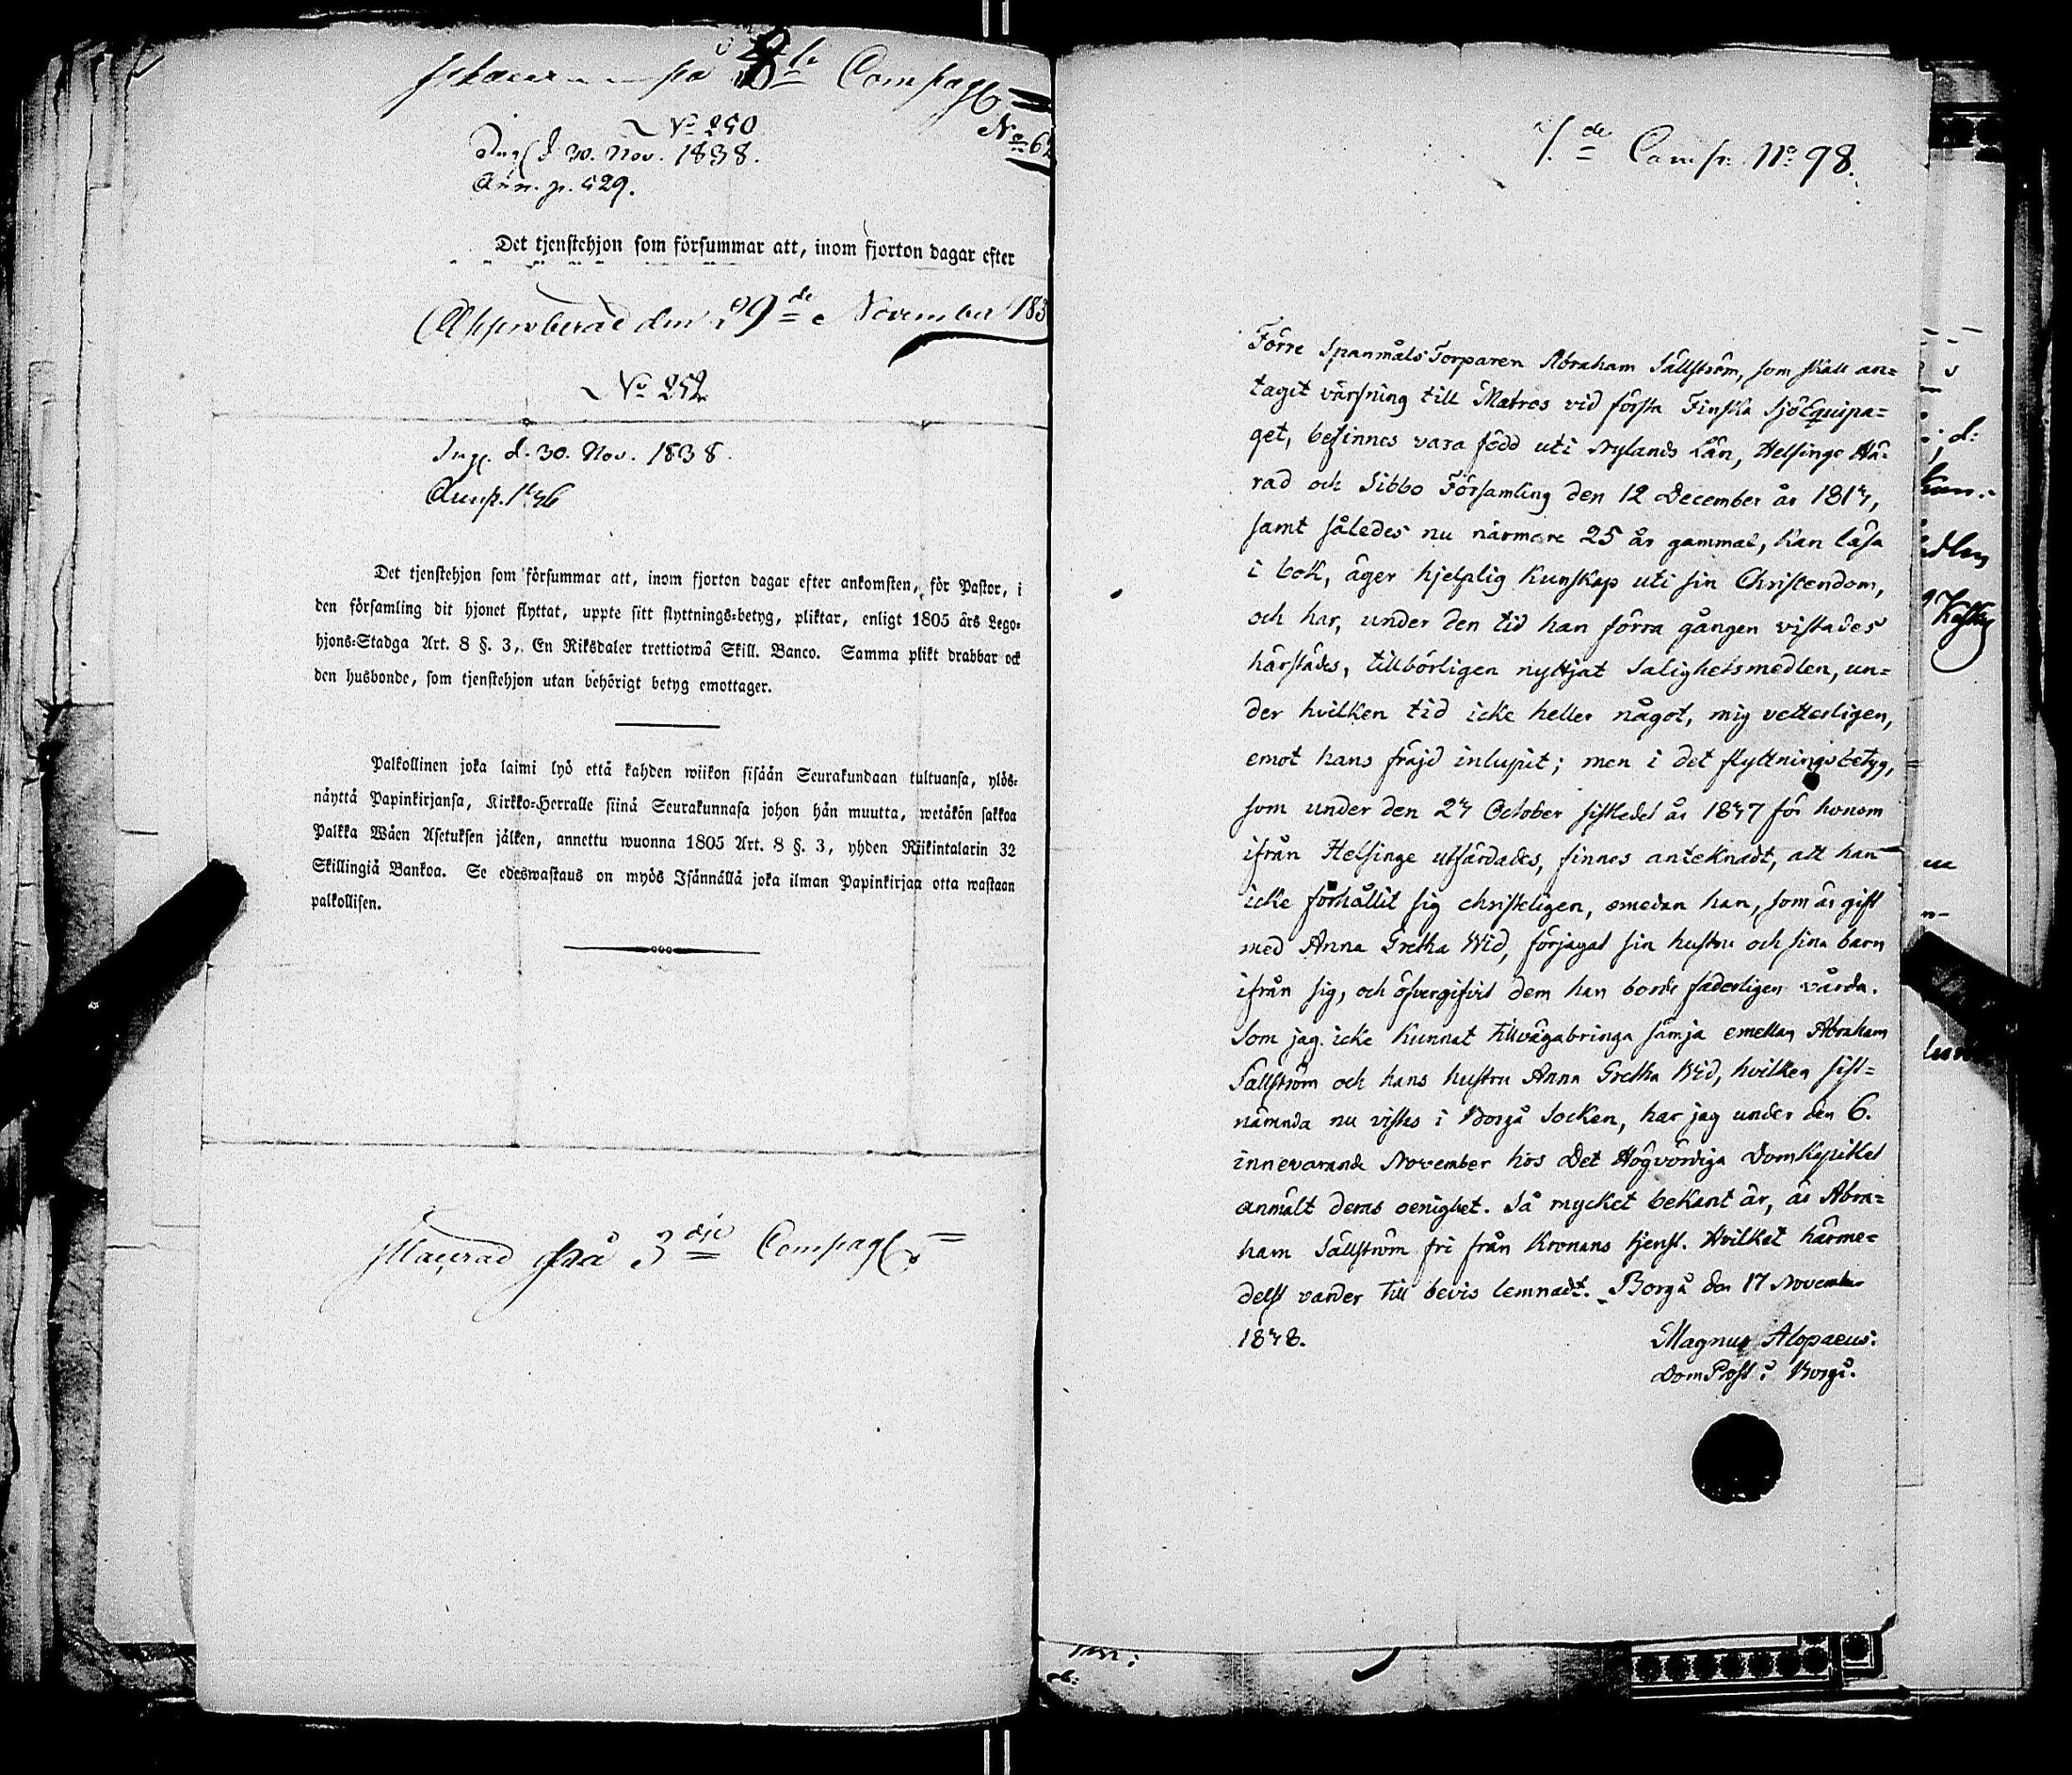 på Compag
No 250
d. 30. Nov. 1838.
Ann. p. 529.
No 62
Det tjenstehjon som försummar att, inom fjorton dagar efter
Approberad den 29de November 183
No 252
Ing. d. 30. Nov. 1838.
Det tjenstehjon som försummar att, inom fjorton dagar efter ankomsten, för Pastor, i
den församling dit hjonet flyttat, uppte sitt flyttnings-betyg, pliktar, enligt 1805 års Lego-
hjons-Stadga Art. 8 §. 3, En Riksdaler trettiotwå Skill. Banco. Samma plikt drabbar ock
den husbonde, som tjenstehjon utan behörigt betyg emottager.
Palkollinen joka laimi lyö että kahden wiikon sisään Seurakundaan tultuansa, ylös-
näyttä Papinkirjansa, Kirkko-Herralle siinä Seurakunnasa johon hän muutta, wetäkön sakkoa
Palkka Wäen Asetuksen jälken, annettu wuonna 1805 Art. 8 §. 3, yhden Riikintalarin 32
Skillingiä Bankoa. Se edeswastaus on myös Isännällä joka ilman Papinkirjaa otta wastaan
palkollisen.
på 3dje Compag
1.de Comp. No 98.
Förre Spanmåls Torparen Abraham Sällström, som skall an=
tagit värfning till Matros vid första Finska SjöEquipa=
get, befinnes vara född uti Nylands Län, Helsinge Hä=
rad och Sibbo Församling den 12 December år 1813,
samt således nu närmare 25 år gammal, kan läsa
i bok, äger hjelplig kunskap uti sin Christendom,
och har, under den tid han förra gången vistades
härstädes, tillbörligen nyttjat Salighetsmedlen, un=
der hvilken tid icke heller något, mig vetterligen,
emot hans fräjd inlupit; men i det flyttningsbetyg,
som under den 23 October sistledet år 1837 för honom
ifrån Helsinge utfärdades, finnes antecknadt, att han
icke förhållit sig christeligen, emedan han, som är gift
med Anna Gretha Wid, förjagat sin hustru och sina barn
ifrån sig, och öfvergifvit dem han borde faderligen vårda.
Som jag icke kunnat tillvägabringa sämja emellan Abraham
Sällström och hans hustru Anna Gretha Wid, hvilken sist=
nämnda nu vistes i Borgå Socken, har jag under den 6.
innevarande November hos Det Högvördiga Domkapitlet
anmält deras oenighet. Så mycket bekant är, är Abra=
ham Sällström fri från Kronans tjenst. Hvilket härme=
delst varder till bevis lemnadt. Borgå den 17 November
1838.
Magnus Alopaeus:
DomProst i Borgå.